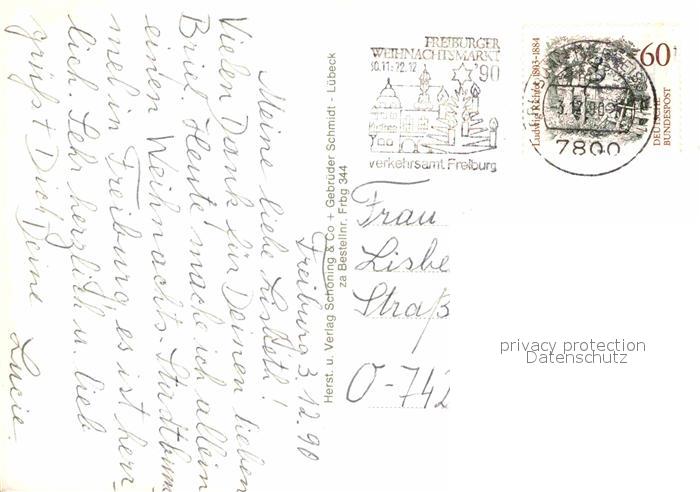 Freiburg 3.12.90
Meine liebe
Vielen Dank für Deinen lieben
Brief. Heute mache ich allein
einen Weihnachts-Stadtbum-
mel in Freiburg, es ist herr-
lich. Sehr herzlich u. lieb
grüßt Dich Deine
Lucie.
Herst. u. Verlag Schöning & Co + Gebrüder Schmidt - Lübeck
za Bestellnr. Frbg 344
FREIBURGER
WEIHNACHTSMARKT
30.11.-22.12. '90
Verkehrsamt Freiburg
7800
Ludwig Richter 1803-1884
60
DEUTSCHE
BUNDESPOST
Frau
Lisbe
Straß
O-742
privacy protection
Datenschutz